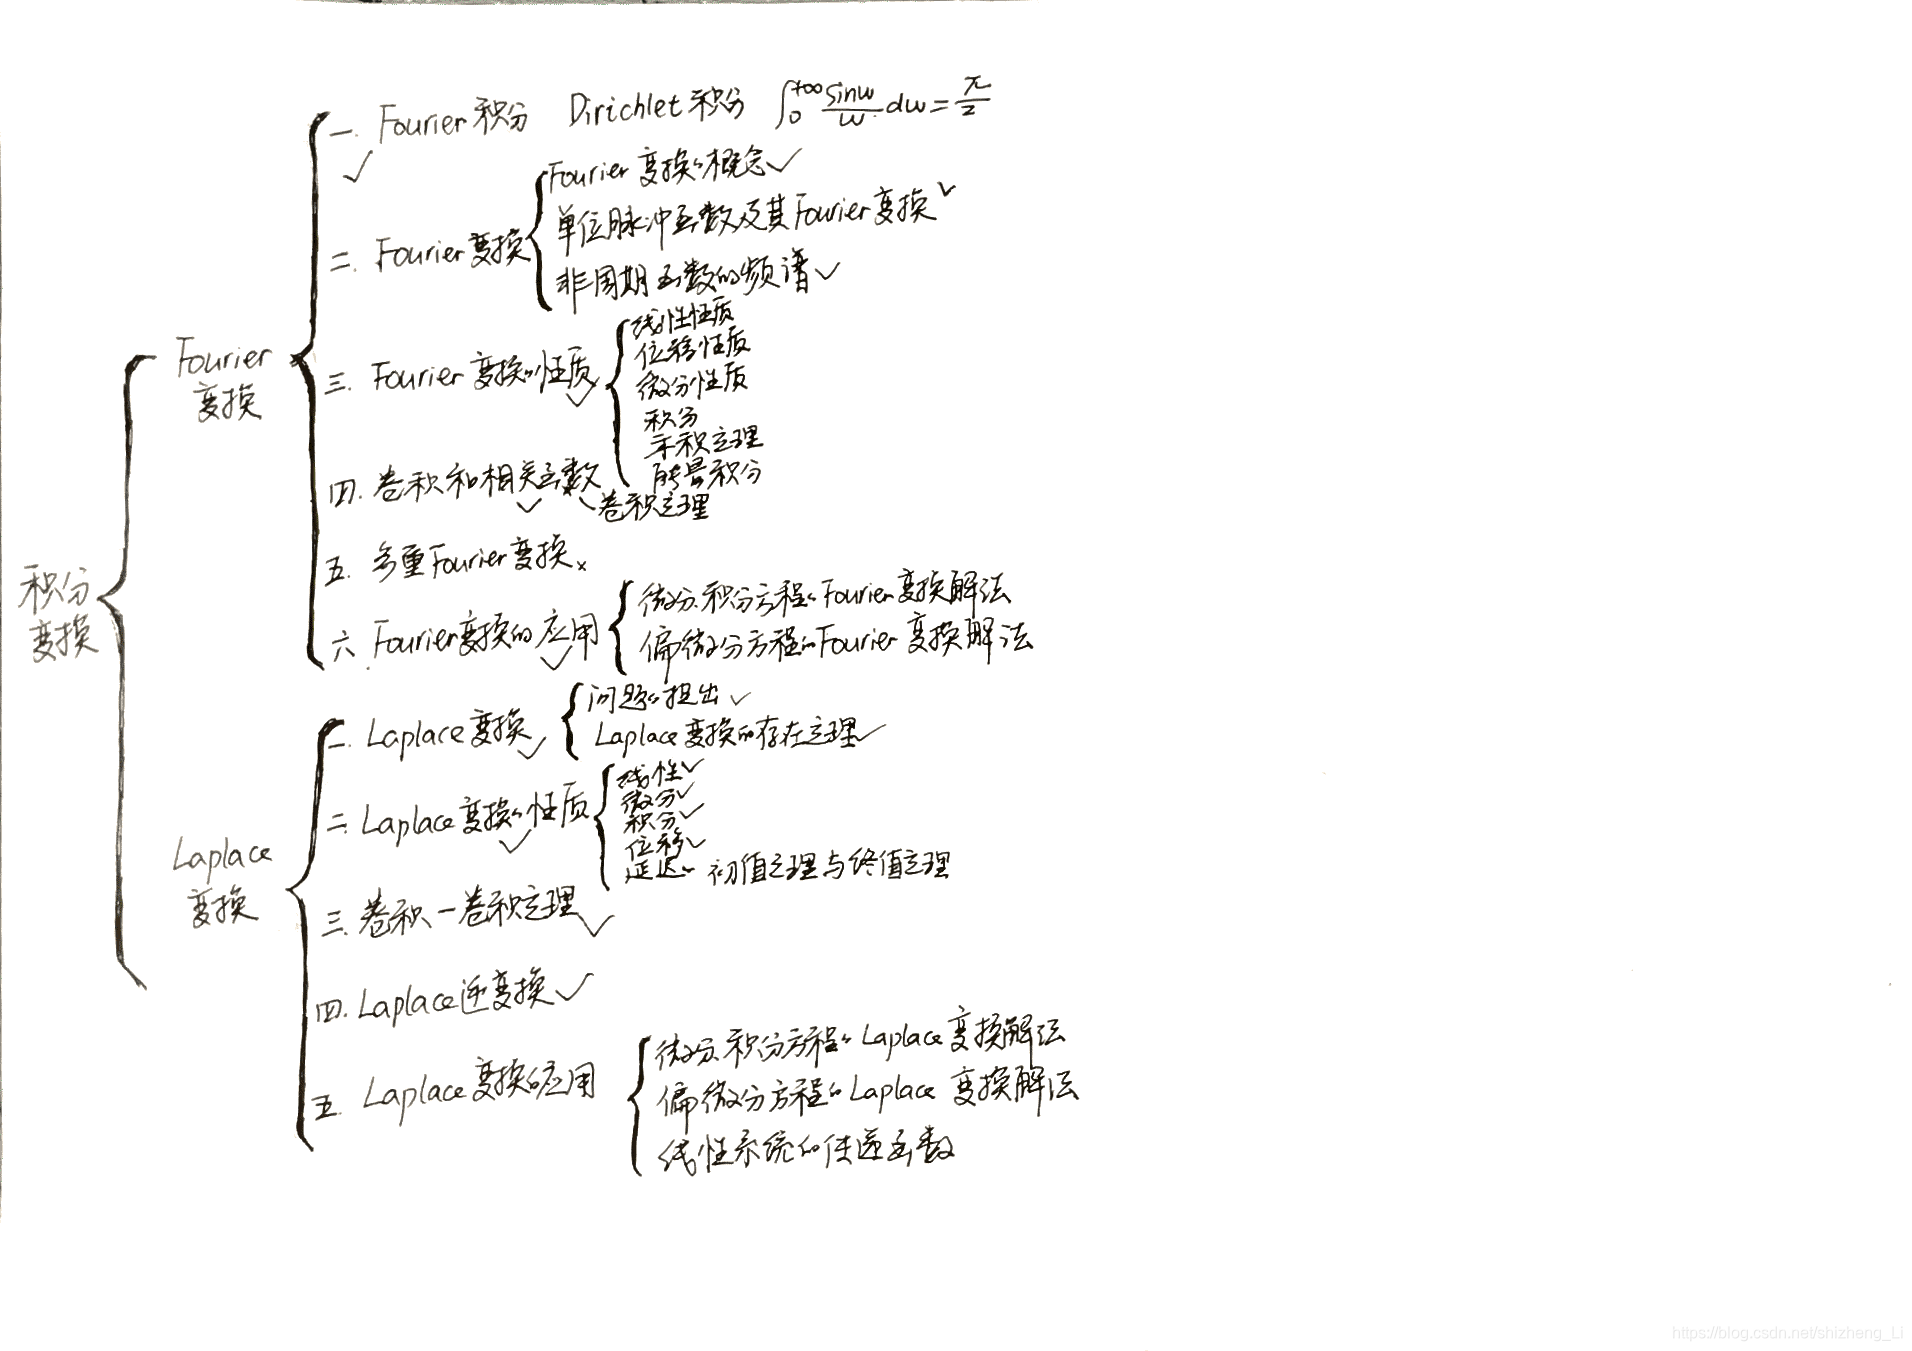 积分
变换
Fourier
变换
一. Fourier积分 Dirichlet积分 ∫₀^{+∞} sinw/w dw = π/2
✓
二. Fourier变换
Fourier变换的概念✓
单位脉冲函数及其Fourier变换✓
非周期函数的频谱✓
三. Fourier变换的性质✓
线性性质
位移性质
微分性质
积分
乘积定理
能量积分
四. 卷积和相关函数✓
卷积定理
五. 多重Fourier变换×
六. Fourier变换的应用✓
微分、积分方程的Fourier变换解法
偏微分方程的Fourier变换解法
Laplace
变换
一. Laplace变换✓
问题的提出✓
Laplace变换的存在定理✓
二. Laplace变换的性质✓
线性✓
微分✓
积分✓
位移✓
延迟✓ 初值定理与终值定理
三. 卷积一卷积定理✓
四. Laplace逆变换✓
五. Laplace变换的应用
微分、积分方程的Laplace变换解法
偏微分方程的Laplace变换解法
线性系统的传递函数
https://blog.csdn.net/shizheng_Li